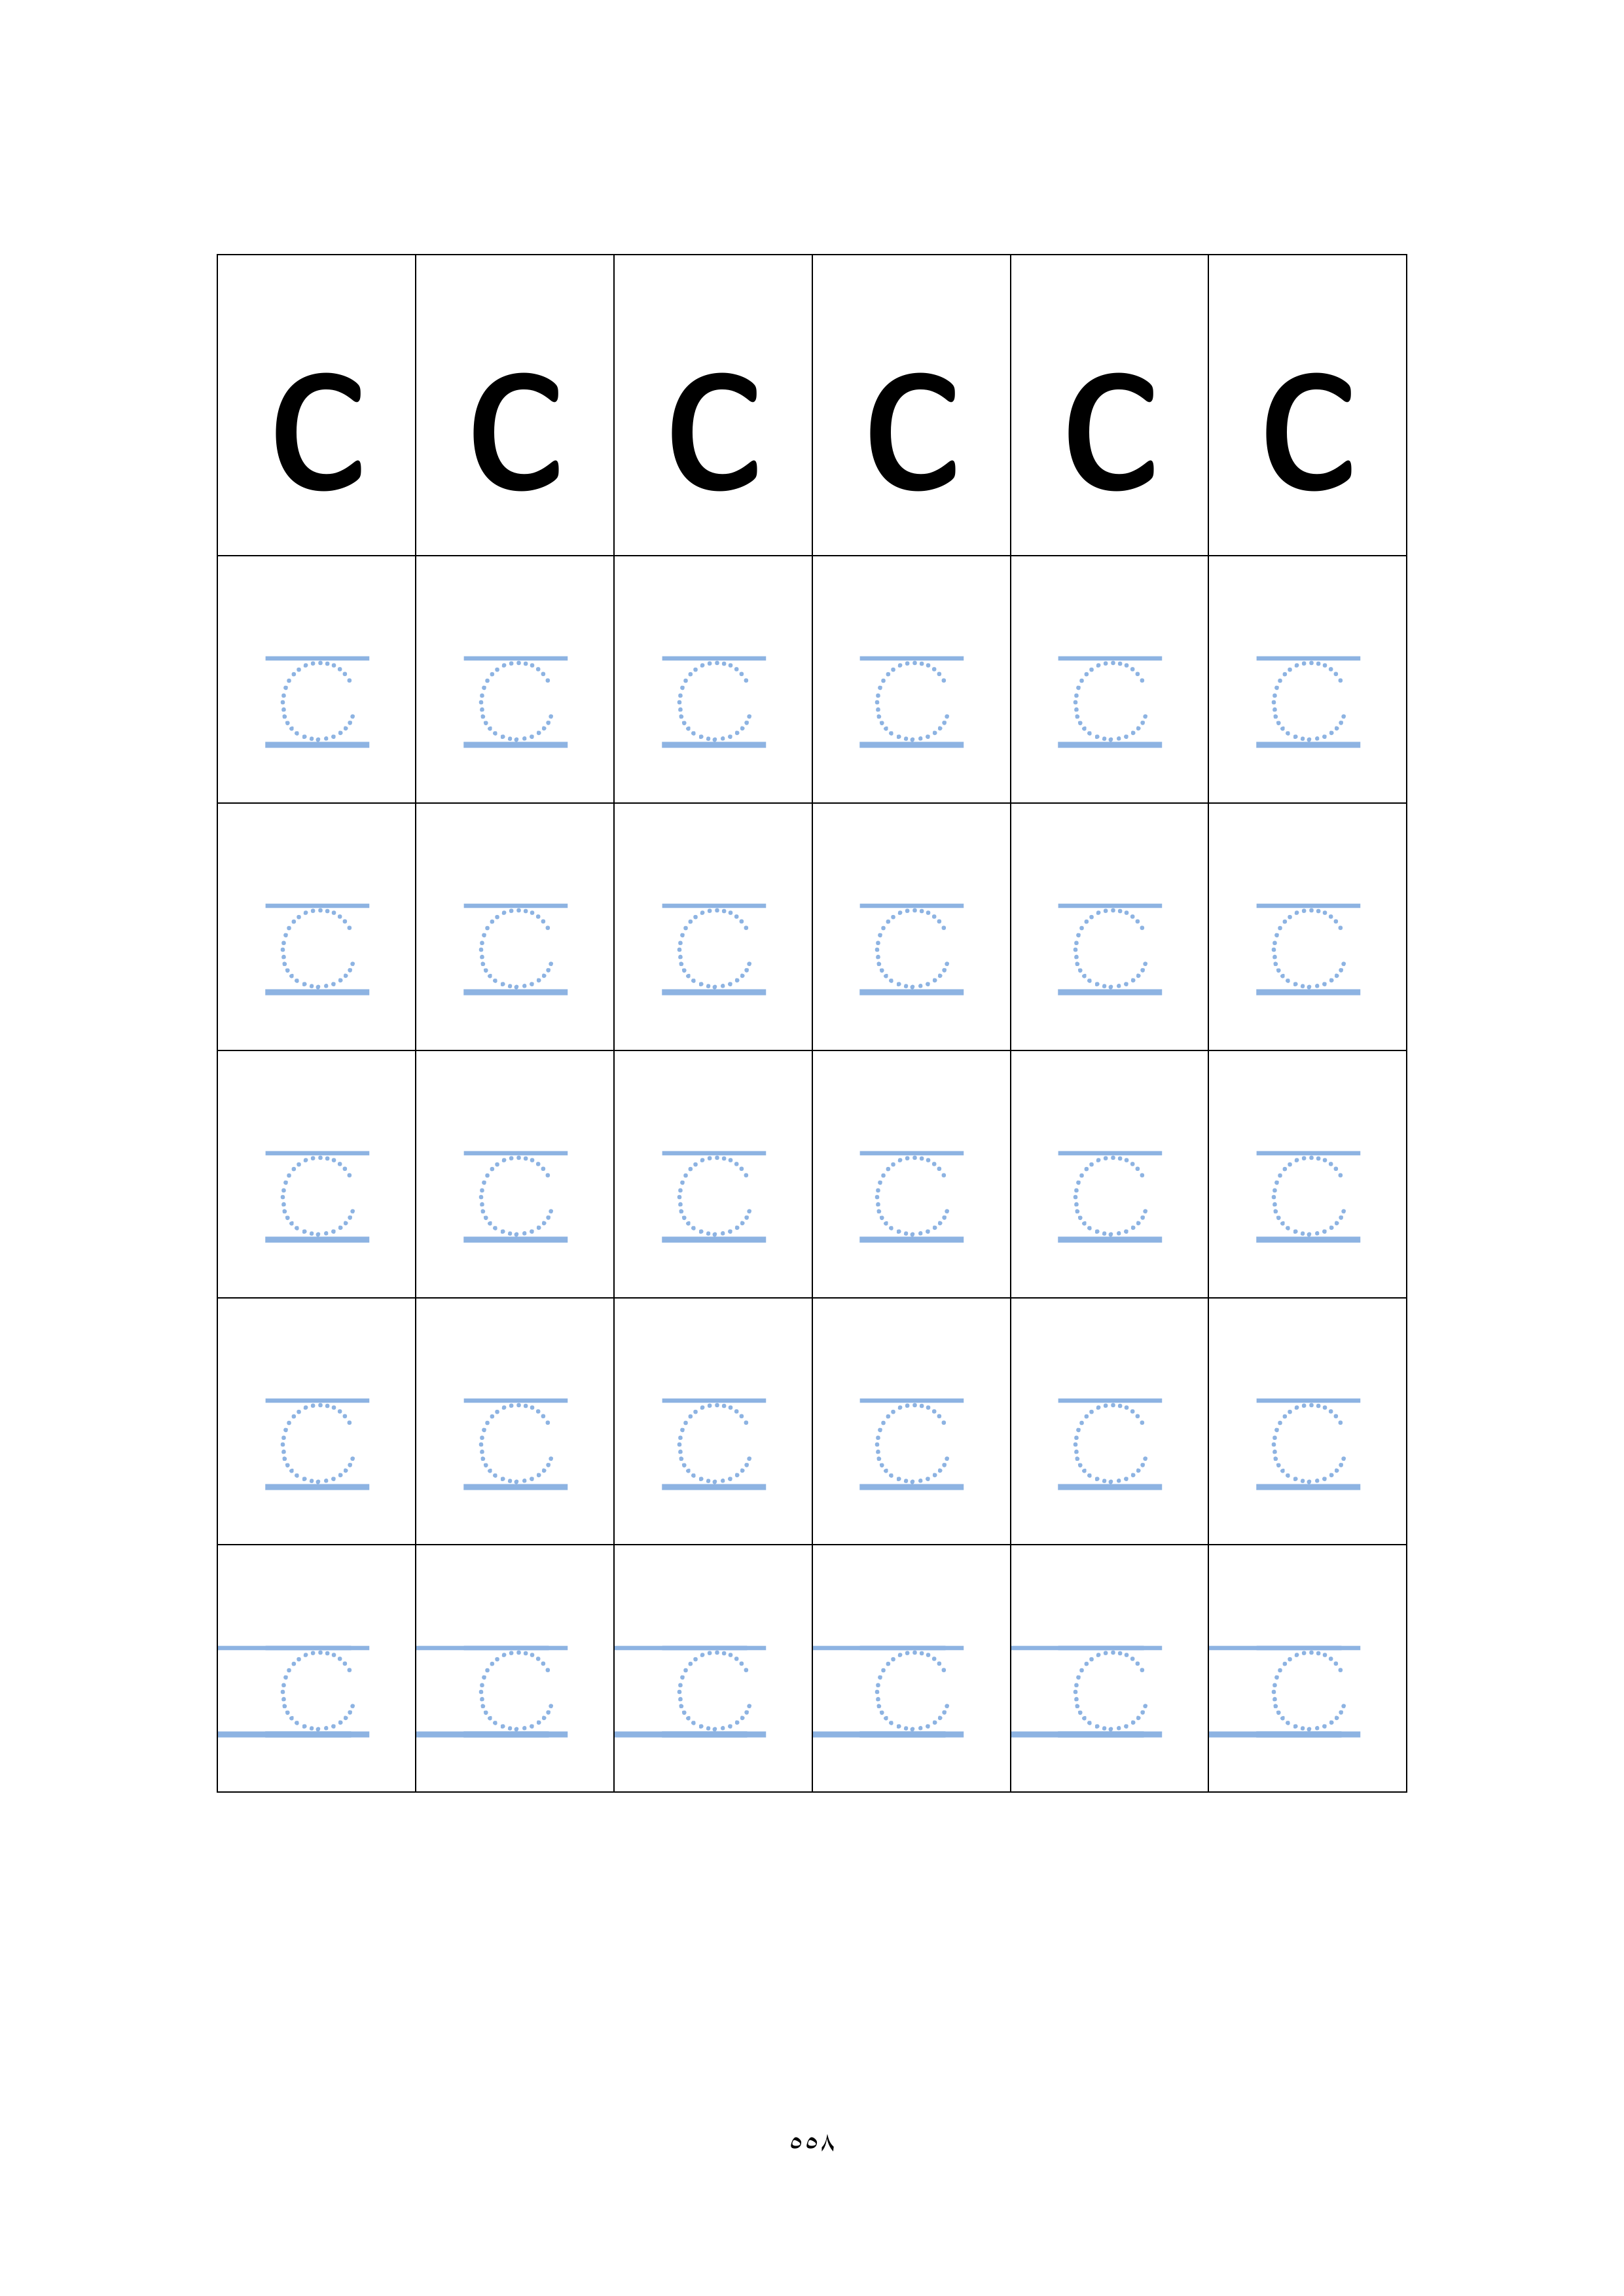 c c c c c c
c c c c c c
c c c c c c
c c c c c c
c c c c c c
c c c c c c
٥٥٨